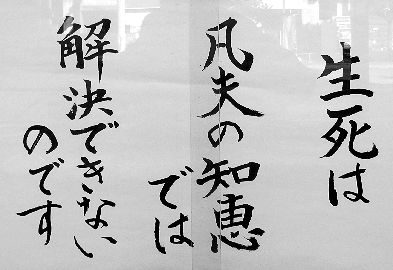 生死は
凡夫の知恵
では
解決できない
のです